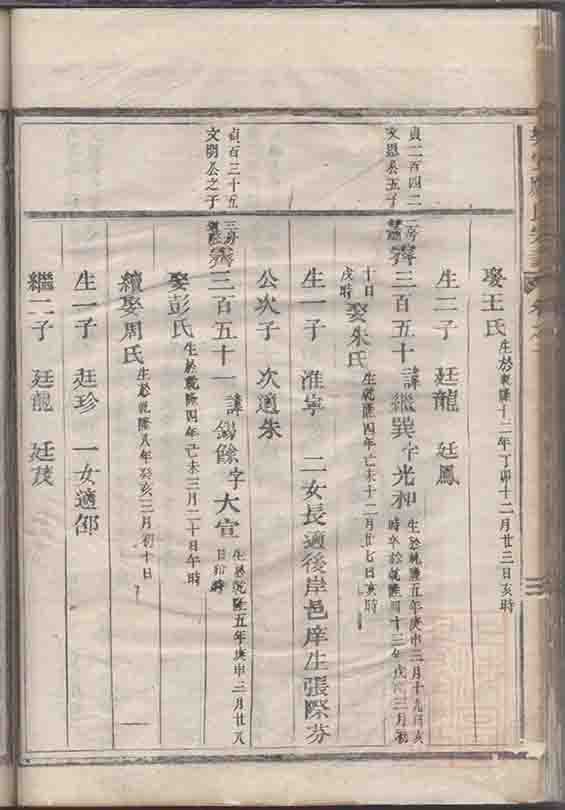 娶王氏 生於乾隆十二年丁卯十二月廿三日亥時
生二子 廷龍 廷鳳
貞二百四二
文恩公五子
二房 三百五十 諱繼巽字光和 生於乾隆五年庚申二月十九日亥
時卒於乾隆四十三年戊戌三月初
十日
戌時 娶朱氏 生於乾隆四年己未十二月廿七日亥時
生一子 淮寧 二女長適後岸邑庠生張際芬
公次子 次適朱
貞百三十五
文明公之子
三房 三百五十一 諱錫餘字大宣 生於乾隆五年庚申三月廿八
日 時
娶彭氏 生於乾隆四年己未三月二十日午時
續娶周氏 生於乾隆八年癸亥三月初十日
生一子 廷珍 一女適邵
繼二子 廷龍 廷茂